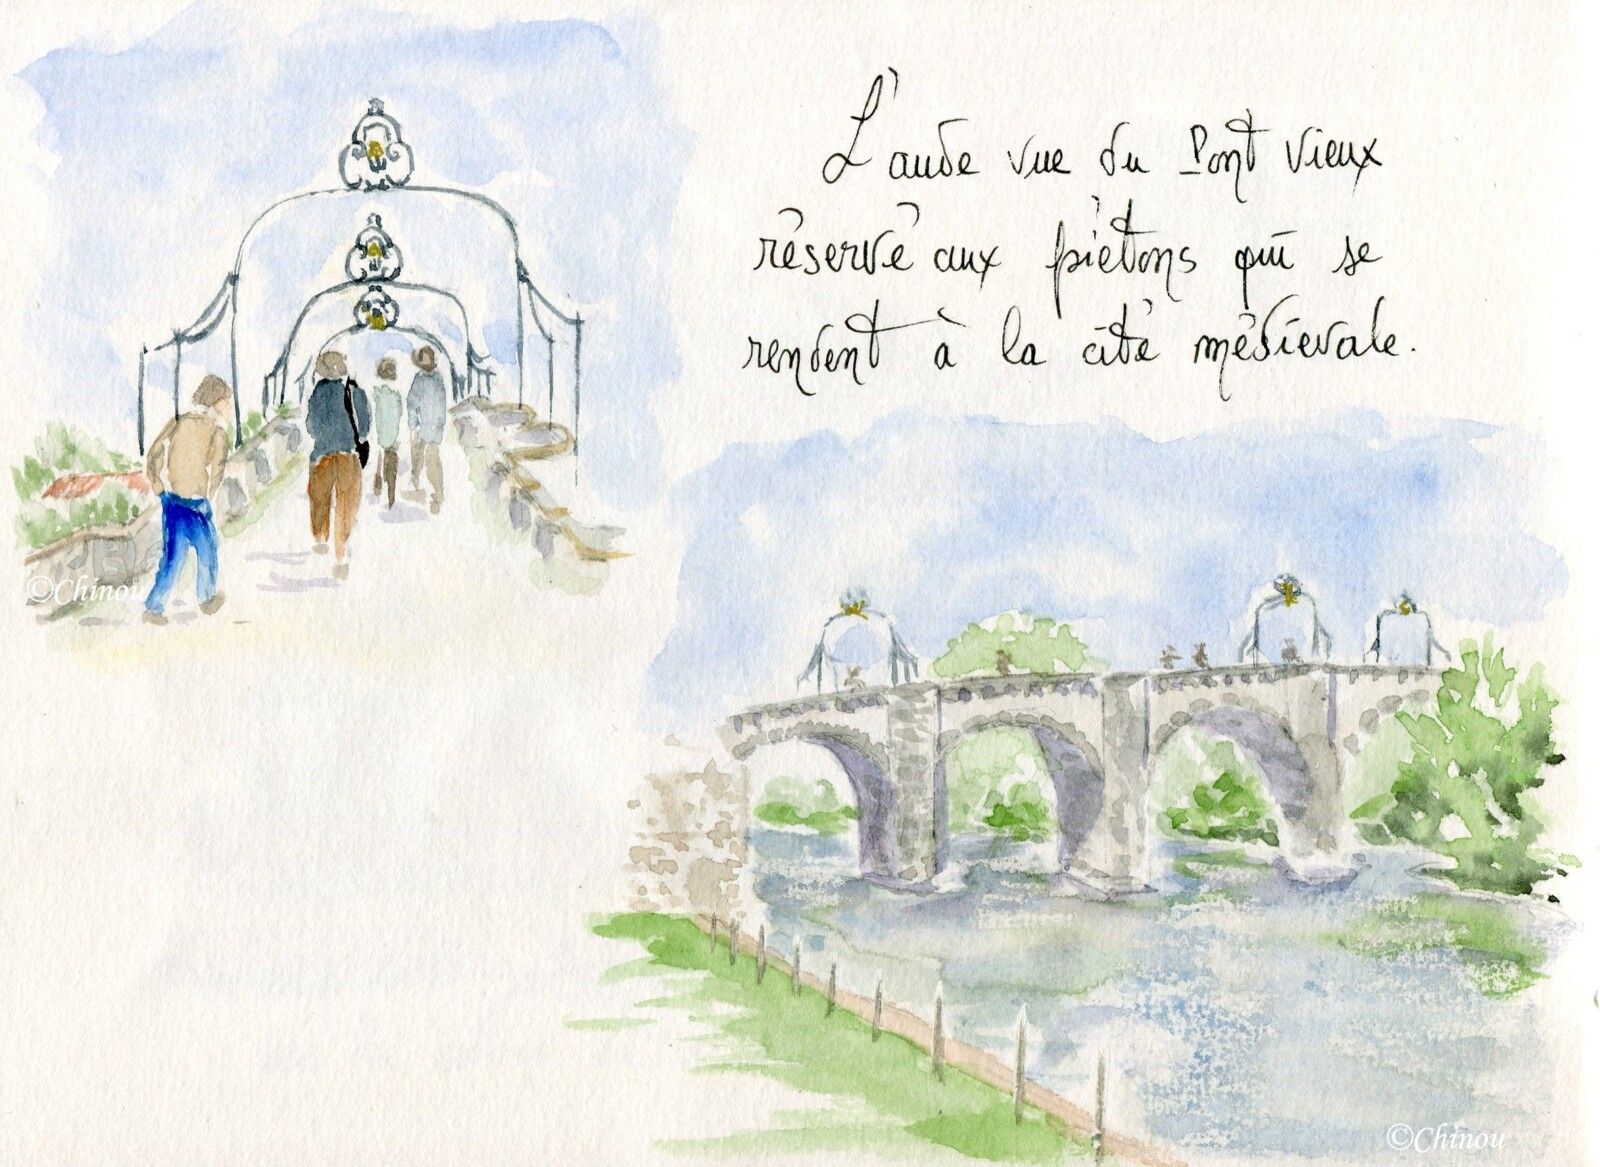 L'aude vue du Pont Vieux
réservé aux piétons qui se
rendent à la cité médiévale.
©Chinou
©Chinou